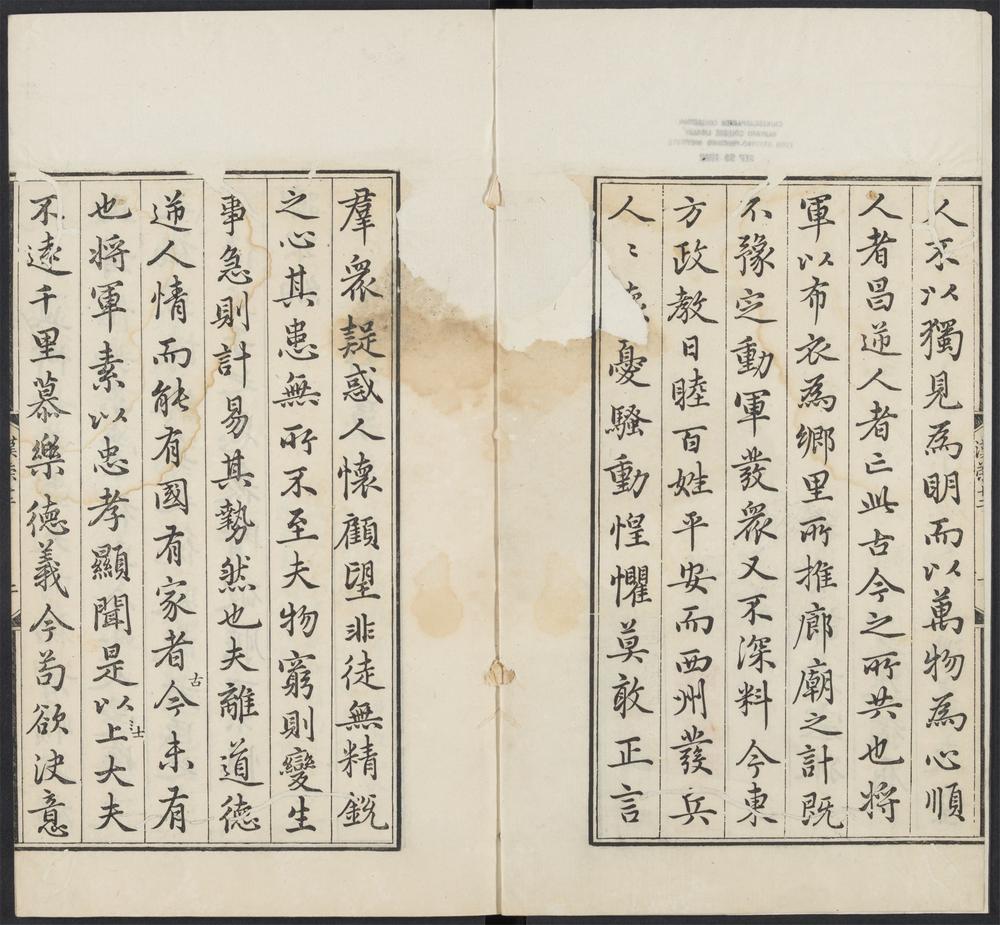 人不以獨見為明而以萬物為心順
人者昌逆人者亡此古今之所共也將
軍以布衣為鄉里所推廊廟之計既
不豫定動軍發眾又不深料今東
方政教日睦百姓平安而西州發兵
人〻憂騷動惶懼莫敢正言
羣眾疑惑人懷顧望非徒無精銳
之心其患無所不至夫物窮則變生
事急則計易其勢然也夫離道德
逆人情而能有國有家者古今未有
也將軍素以忠孝顯聞是以士大夫
不遠千里慕樂德義今苟欲決意